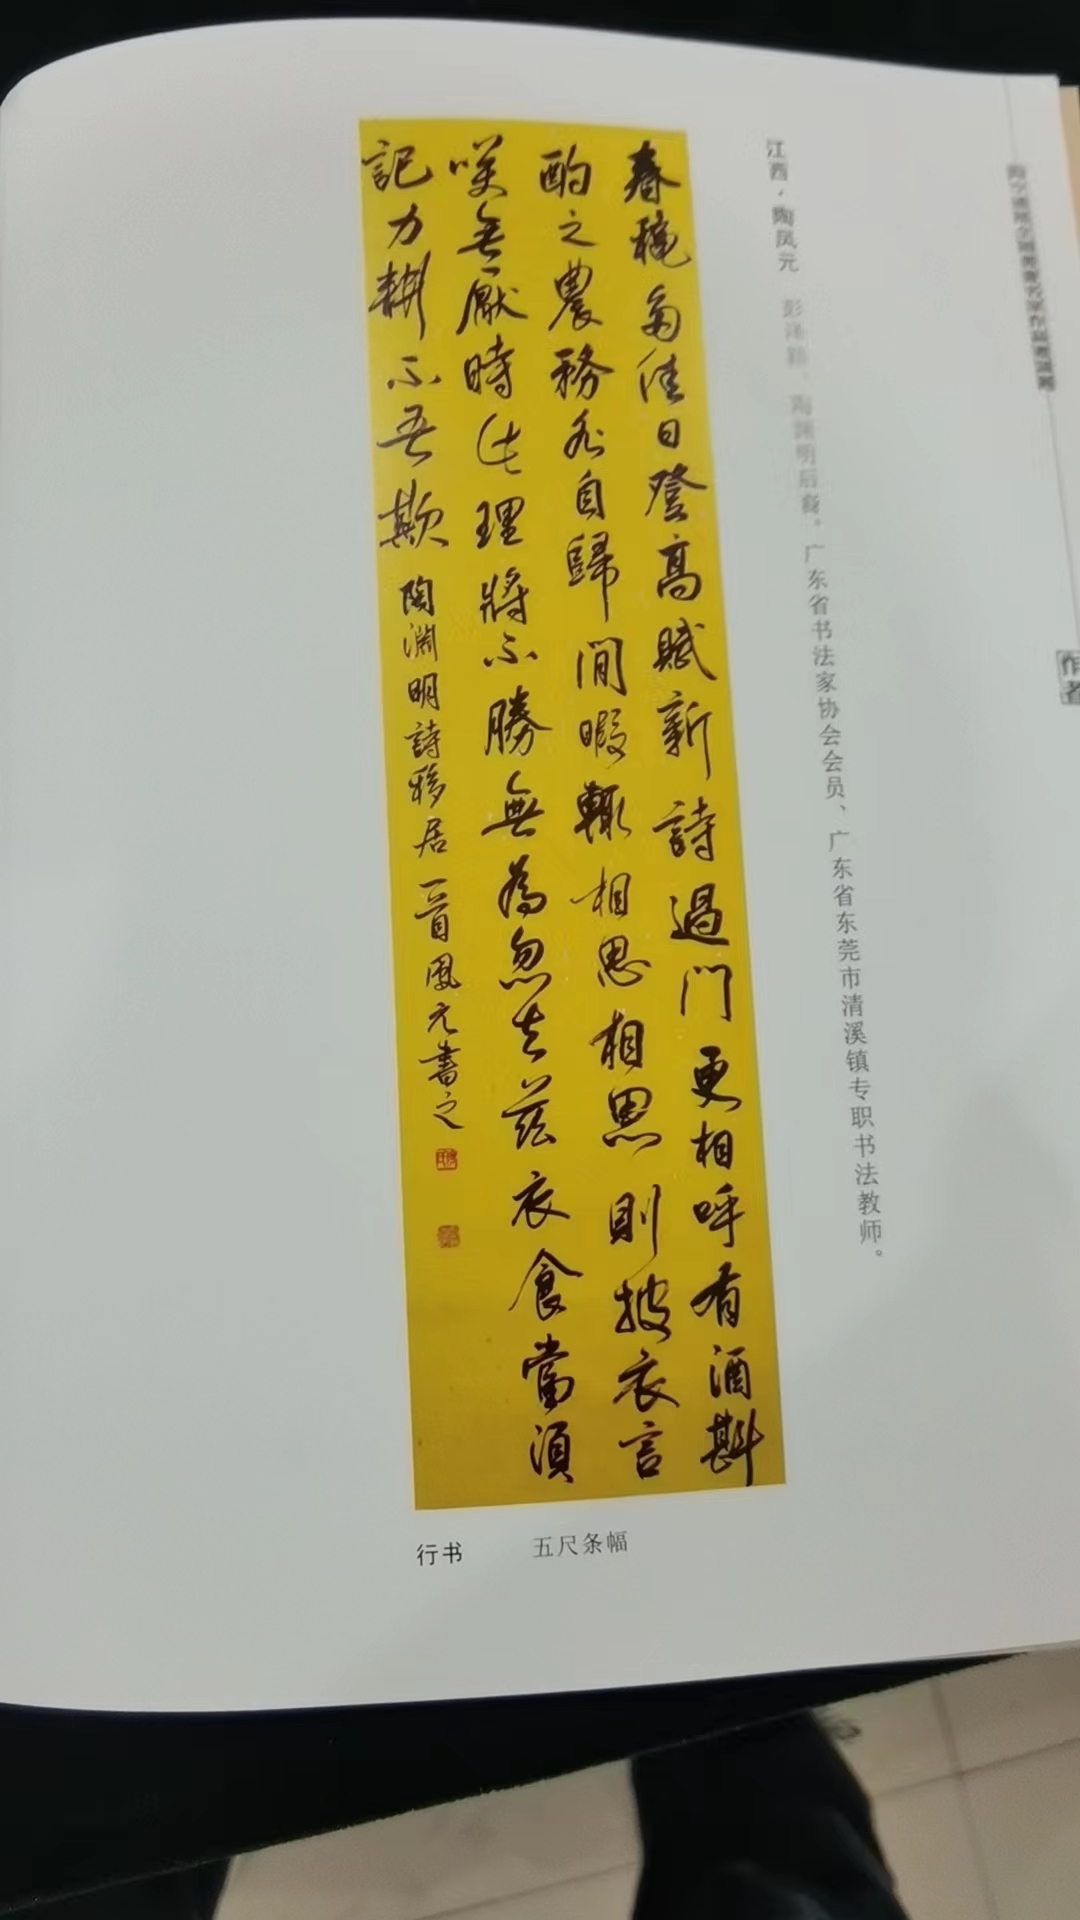 江西·陶凤元 彭泽籍、陶渊明后裔。广东省书法家协会会员、广东省东莞市清溪镇专职书法教师。
作者
春秋多佳日登高賦新詩過門更相呼有酒斟
酌之農務各自歸閒暇輒相思相思則披衣言
咲無厭時此理將不勝無為忽去茲衣食當須
記力耕不吾欺
陶淵明詩移居一首鳳元書之
行书 五尺条幅